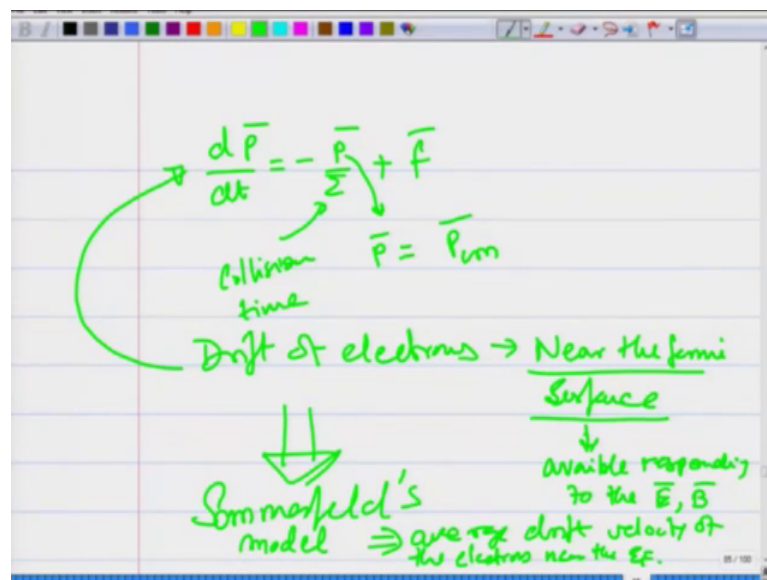 d p̄ / dt = - p̄ / Σ + f̄
Collision
time
p̄ = p̄cm
Drift of electrons → Near the fermi
Surface
availble responding
to the Ē, B̄
Sommerfeld's
model ⇒ average drift velocity of
the electrons near the EF.
85 / 100